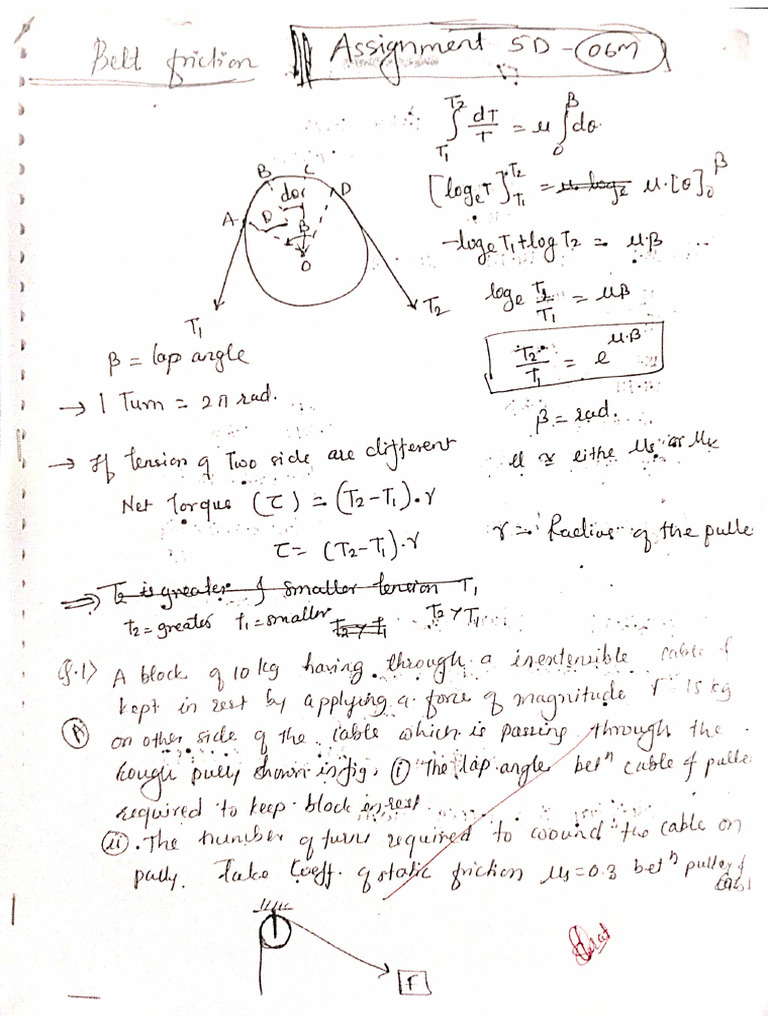 Belt friction
Assignment 5D - 06M
∫ T1 T2 dT/T = μ ∫ 0 β dθ
[loge T] T1 T2 = μ.[θ] 0 β
-loge T1 + log T2 = μ.β
loge T2/T1 = μβ
T2/T1 = e^μ.β
β = rad.
μ ≅ eithe μs or μk
B C
D
A D
β
O
T1
T2
β = lap angle
→ 1 Turn = 2π rad.
→ If tension of Two side are different
Net Torque (τ) = (T2-T1).r
τ = (T2-T1).r
r = Radius of the pulle
⇒ T2 is greater & smaller tension T1
t2 = greater t1 = smaller T2 > T1 T2 > T1
Q.1) A block of 10 kg having through a inextensible cable &
kept in rest by applying a force of magnitude F 15 kg
(A) on other side of the cable which is passing through the
rough pully shown in fig. (i) The lap angle betn cable & pulle
required to keep block in rest.
(ii). The number of turns required to wound the cable on
pully. Take Coeff. of static friction μs = 0.3 betn pulley &
F